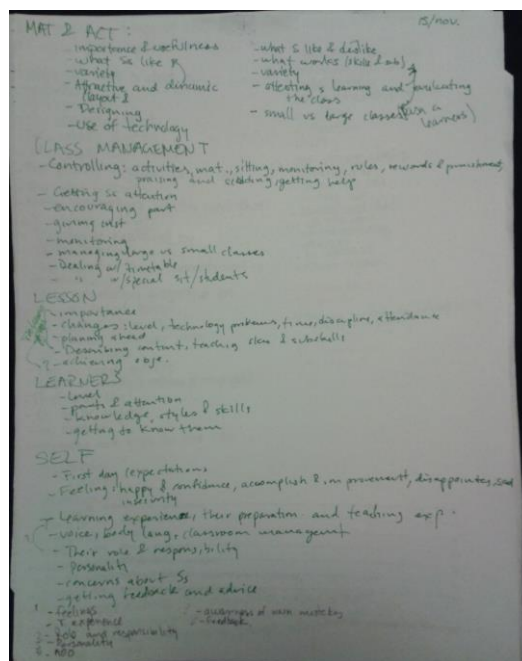 15/nov.
MAT & ACT:
- importance & usefulness
- what Ss like &
- variety
- Attractive and dynamic
layout &
- Designing
- Use of technology
- what S like & dislike
- what works (skills & ab)
- variety
- affecting s learning and facilitating
the class
- small vs large classes
learners)
CLASS MANAGEMENT
- Controlling: activities, mat., sitting, monitoring, rules, rewards & punishment,
praising and scolding, getting help
- Getting Ss attention
- encouraging part
- giving inst
- monitoring
- managing large vs small classes
- Dealing w/ timetable
- " w/special sit/students
LESSON
- importance
- changes: level, technology problems, time, discipline, attendance
- planning ahead
- Describing content, teaching class & subskills
- achieving obje.
LEARNERS
- Level
- part & attention
- knowledge, styles & skills
- getting to know them
SELF
- First day (expectations
- Feeling: happy & confidence, accomplish & improvement, disappointed, sad
insecurity
- Learning experience, their preparation and teaching exp.
- voice, body lang, classroom management
- Their role & responsibility
- Personality
- concerns about Ss
- getting feedback and advice
1 - feelings
- T experience
3 - Role and responsibility
- Personality
6
- awareness of own
- feedback